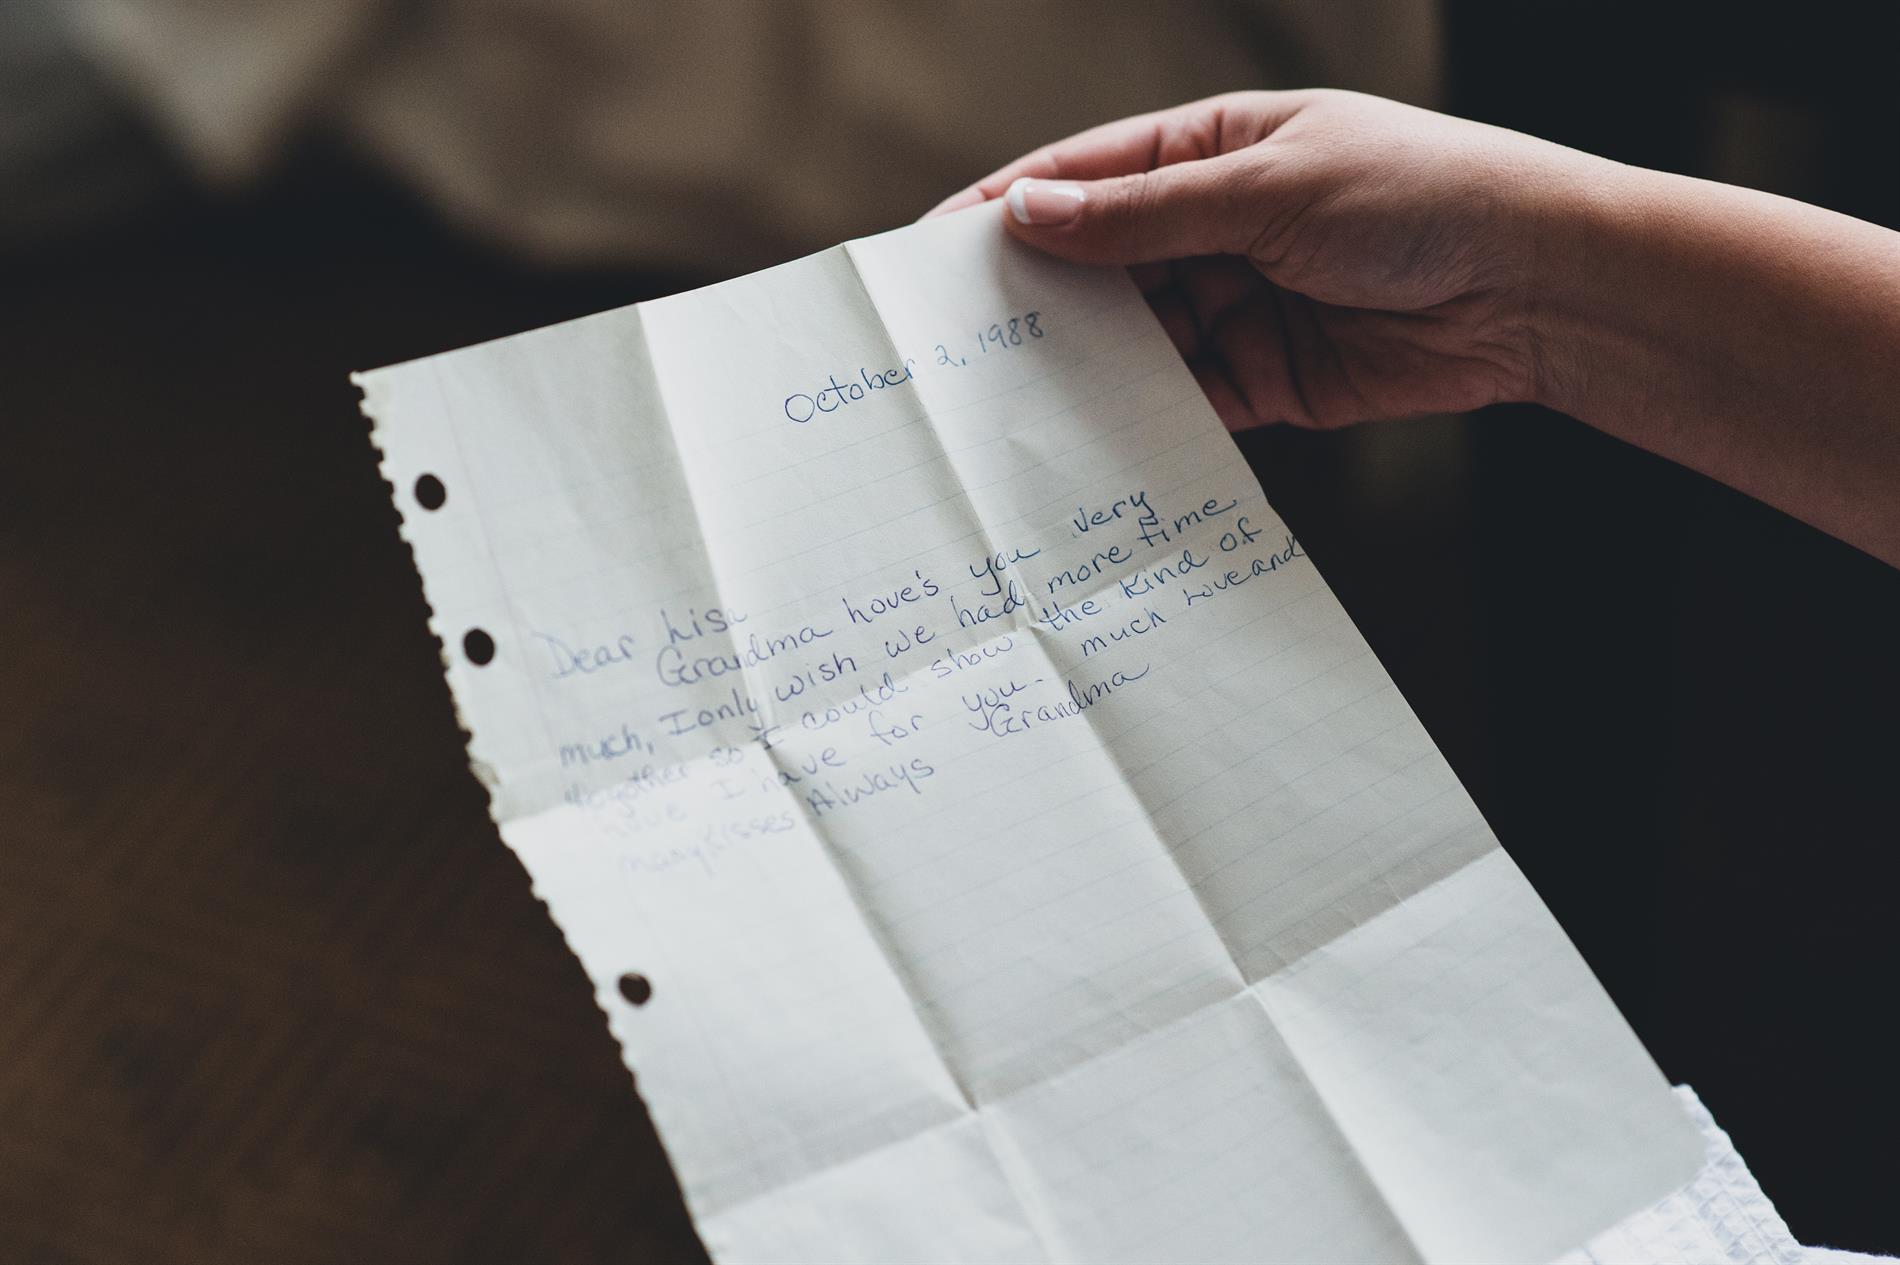 October 2, 1988
Dear Lisa
Grandma Love's you very
much, I only wish we had more time
together so I could show the kind of
Love I have for you. much Love and
many kisses Always Grandma